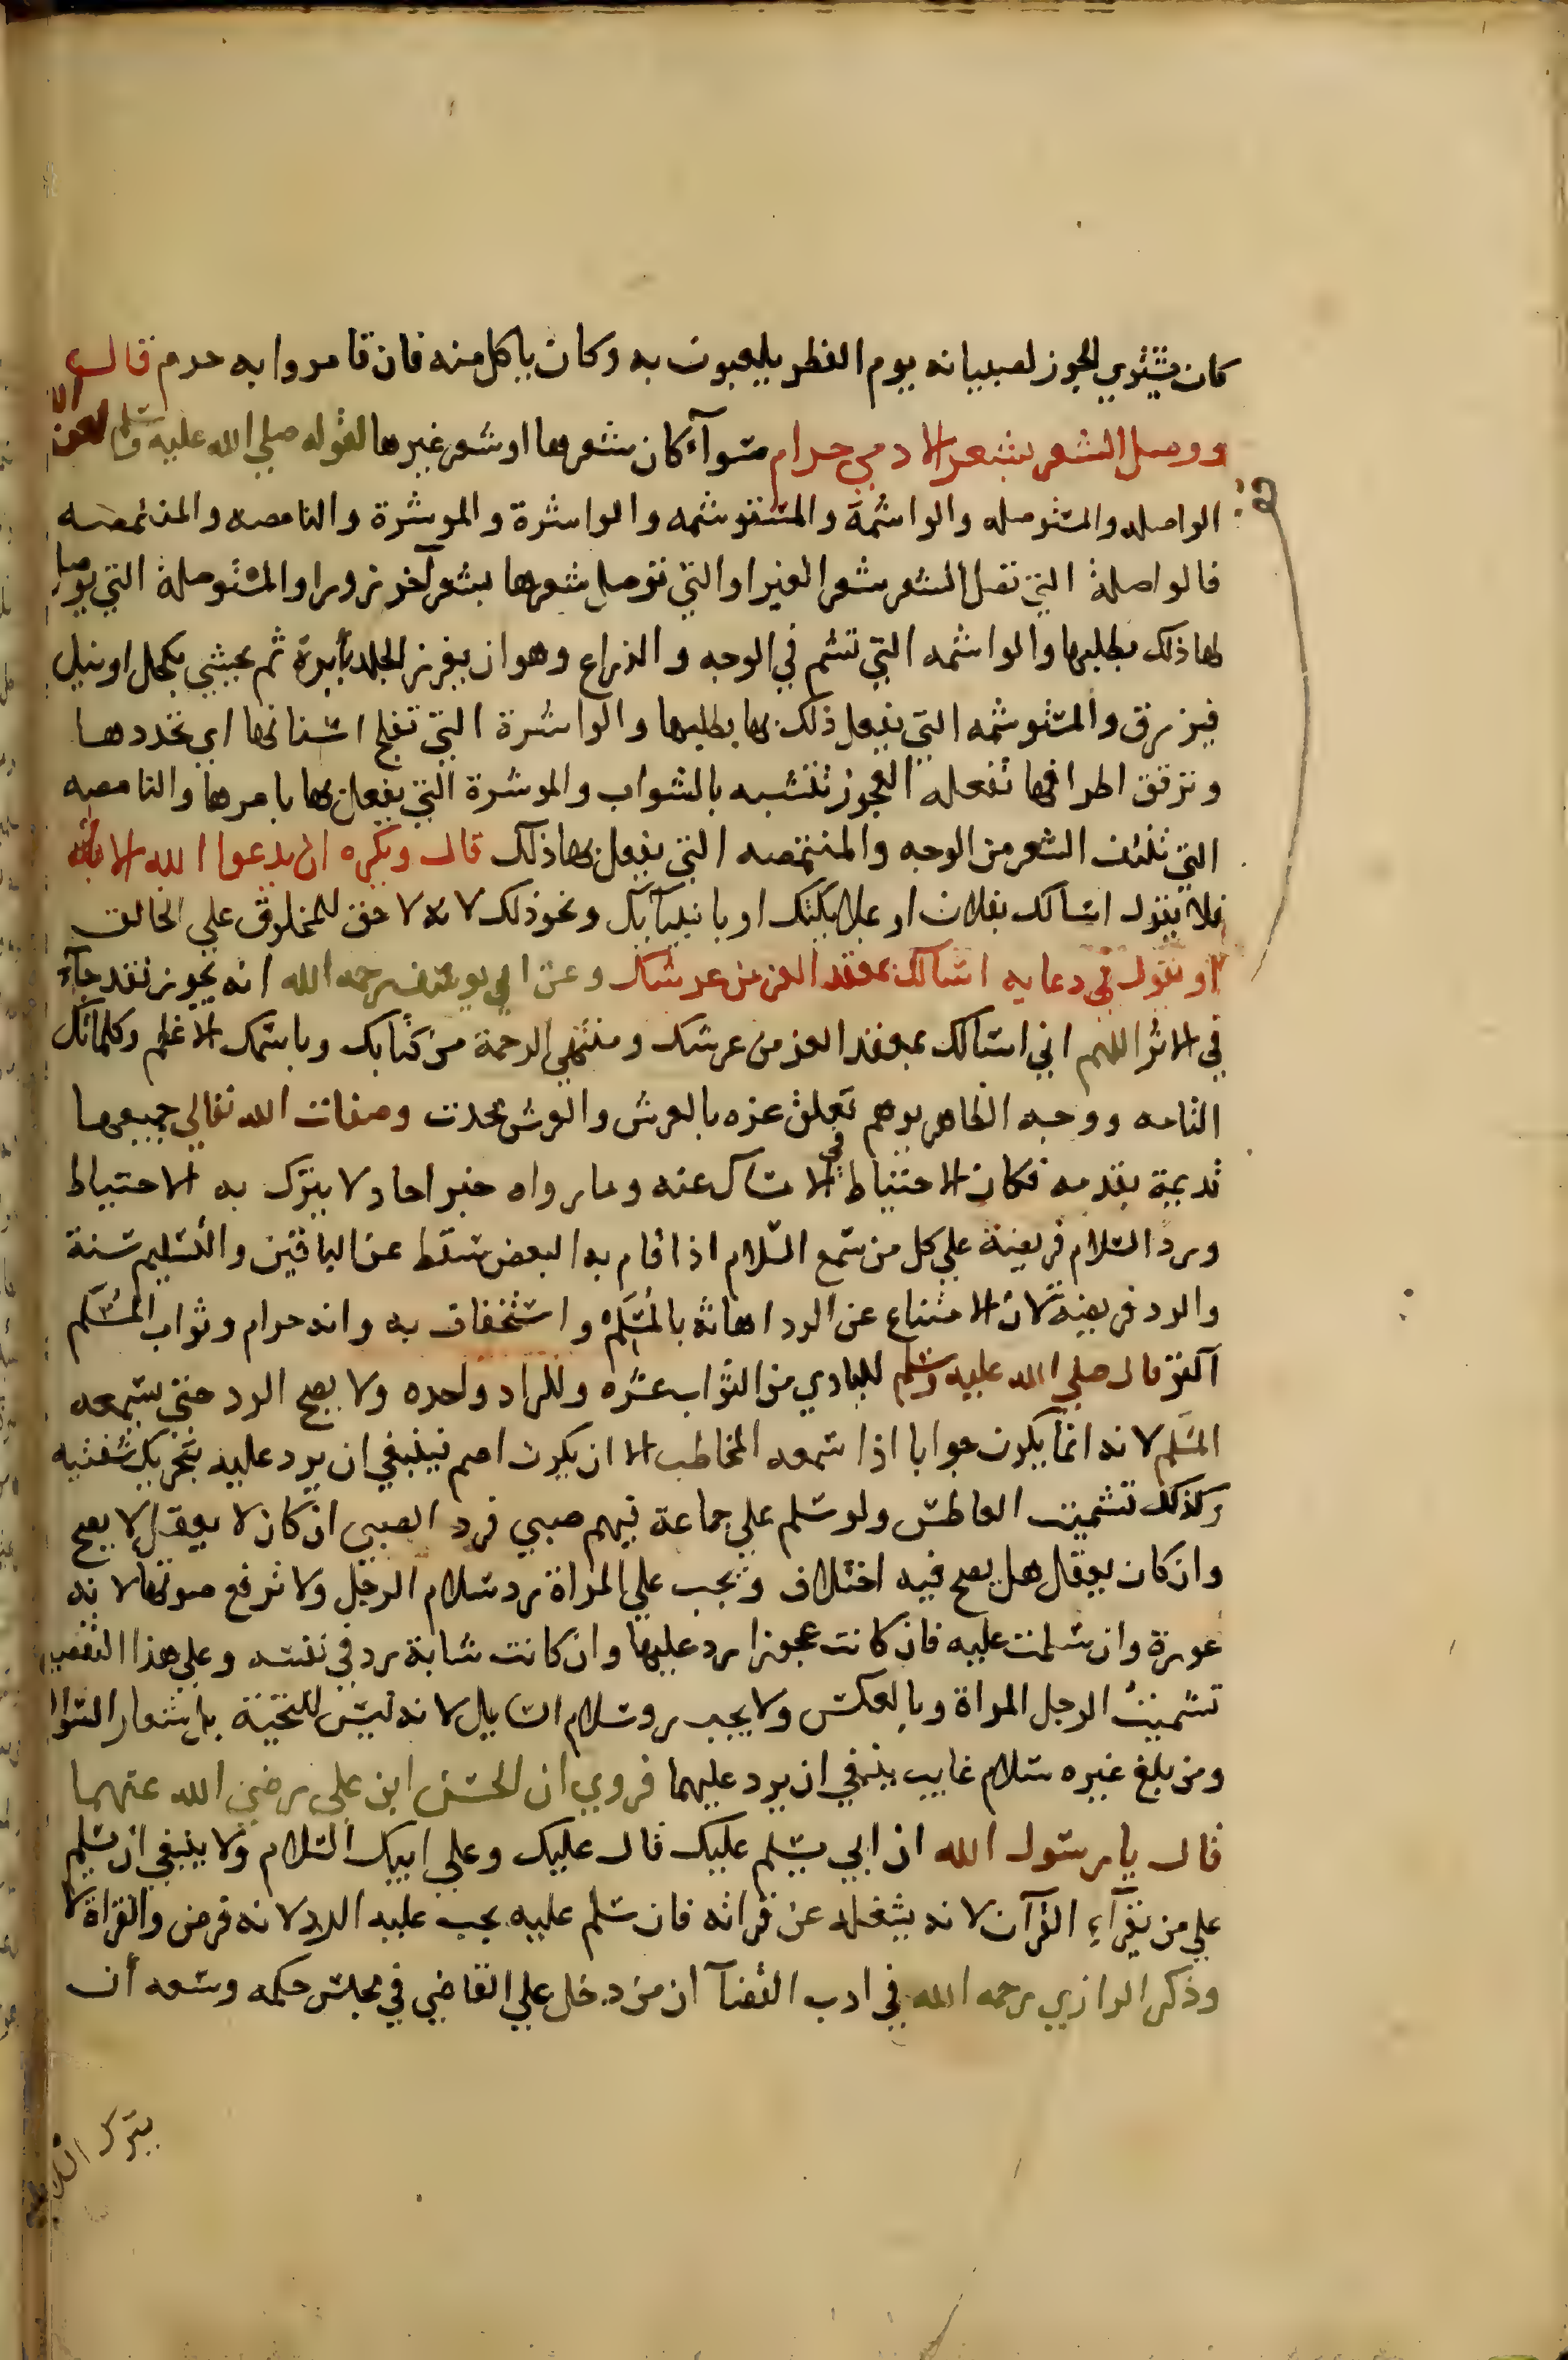 كان يشتري الجوز لصبيانه يوم الفطر يلعبون به وكان ياكل منه فان قامروا به حرم قال
ووصل الشعر بشعر الادمي حرام سوآء كان شعرها او شعر غيرها لقوله صلي الله عليه وسلم لعن الله
الواصله والمستوصله والواشمة والمستوشمه والواشرة والموشرة والنامصه والمتنمصه
فالواصلة التي تصل الشعر بشعر الغير او التي توصل شعرها بشعر آخر زورا والمستوصلة التي يوصل
لها ذلك بطلبها والواشمه التي تشم في الوجه والذراع وهو ان يغرز الجلد بأبرة ثم يحشي بكحل او نيل
فيزرق والمستوشمه التي يفعل ذلك بها بطلبها والواشرة التي تفلج اسنانها اي تحددها
وترقق اطرافها تفعله العجوز تتشبه بالشواب والموشرة التي يفعل بها بامرها والنامصه
التي تنتف الشعر من الوجه والمتنمصه التي يفعل بها ذلك قال ويكره ان يدعوا الله الا به
فلا يقول اسالك بفلان او بملايكتك او بانبيآيك ونحو ذلك لانه لا حق للمخلوق علي الخالق
او يقول في دعايه اسالك بمعقد العز من عرشك وعن ابي يوسف رحمه الله انه يجوز فقد جآء
في الاثر اللهم اني اسالك بمعقد العز من عرشك ومنتهي الرحمة من كتابك وباسمك الاعظم وكلماتك
التامه ووجه الظاهر يوهم تعلق عزه بالعرش والعرش محدث وصفات الله تعالي جميعها
قديمة بقدمه فكان الاحتياط في الامساك عنه وما رواه خبر احاد لا يترك به الاحتياط
ورد السلام فريضة علي كل من سمع السلام اذا قام به البعض سقط عن الباقين والتسليم سنة
والرد فريضة لان الامتناع عن الرد اهانة بالمسلم واستخفاف به وانه حرام وثواب المسلم
اكثر قال صلي الله عليه وسلم للبادي من الثواب عشره وللراد واحده ولا يصح الرد حتي يسمعه
المسلم لانه انما يكون جوابا اذا سمعه المخاطب الا ان يكون اصم فينبغي ان يرد عليه بتحريك شفتيه
وكذلك تشميت العاطس ولو سلم علي جماعة فيهم صبي فرد الصبي ان كان لا يعقل لا يصح
وان كان يعقل هل يصح فيه اختلاف ويجب علي المراة رد سلام الرجل ولا ترفع صوتها لانه
عورة وان سلمت عليه فان كانت عجوزا رد عليها وان كانت شابة رد في نفسه وعلي هذا التفصيل
تشميت الرجل المراة وبالعكس ولا يجب رد سلام السايل لانه ليس للتحية بل شعار السوال
ومن بلغ غيره سلام غايب ينبغي ان يرد عليهما فروي ان الحسن ابن علي رضي الله عنهما
قال يا رسول الله ان ابي يسلم عليك قال عليك وعلي ابيك السلام ولا ينبغي ان يسلم
علي من يقرآء القرآن لانه يشغله عن قراته فان سلم عليه يجب عليه الرد لانه فرض والقراة لا
وذكر الرازي رحمه الله في ادب القضآ ان من دخل علي القاضي في مجلس حكمه وسعه أن
يترك